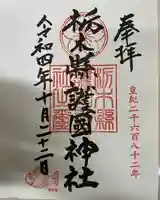 奉拝
皇紀二千六百八十二年
栃木縣護國神社
令和四年十月二十二日